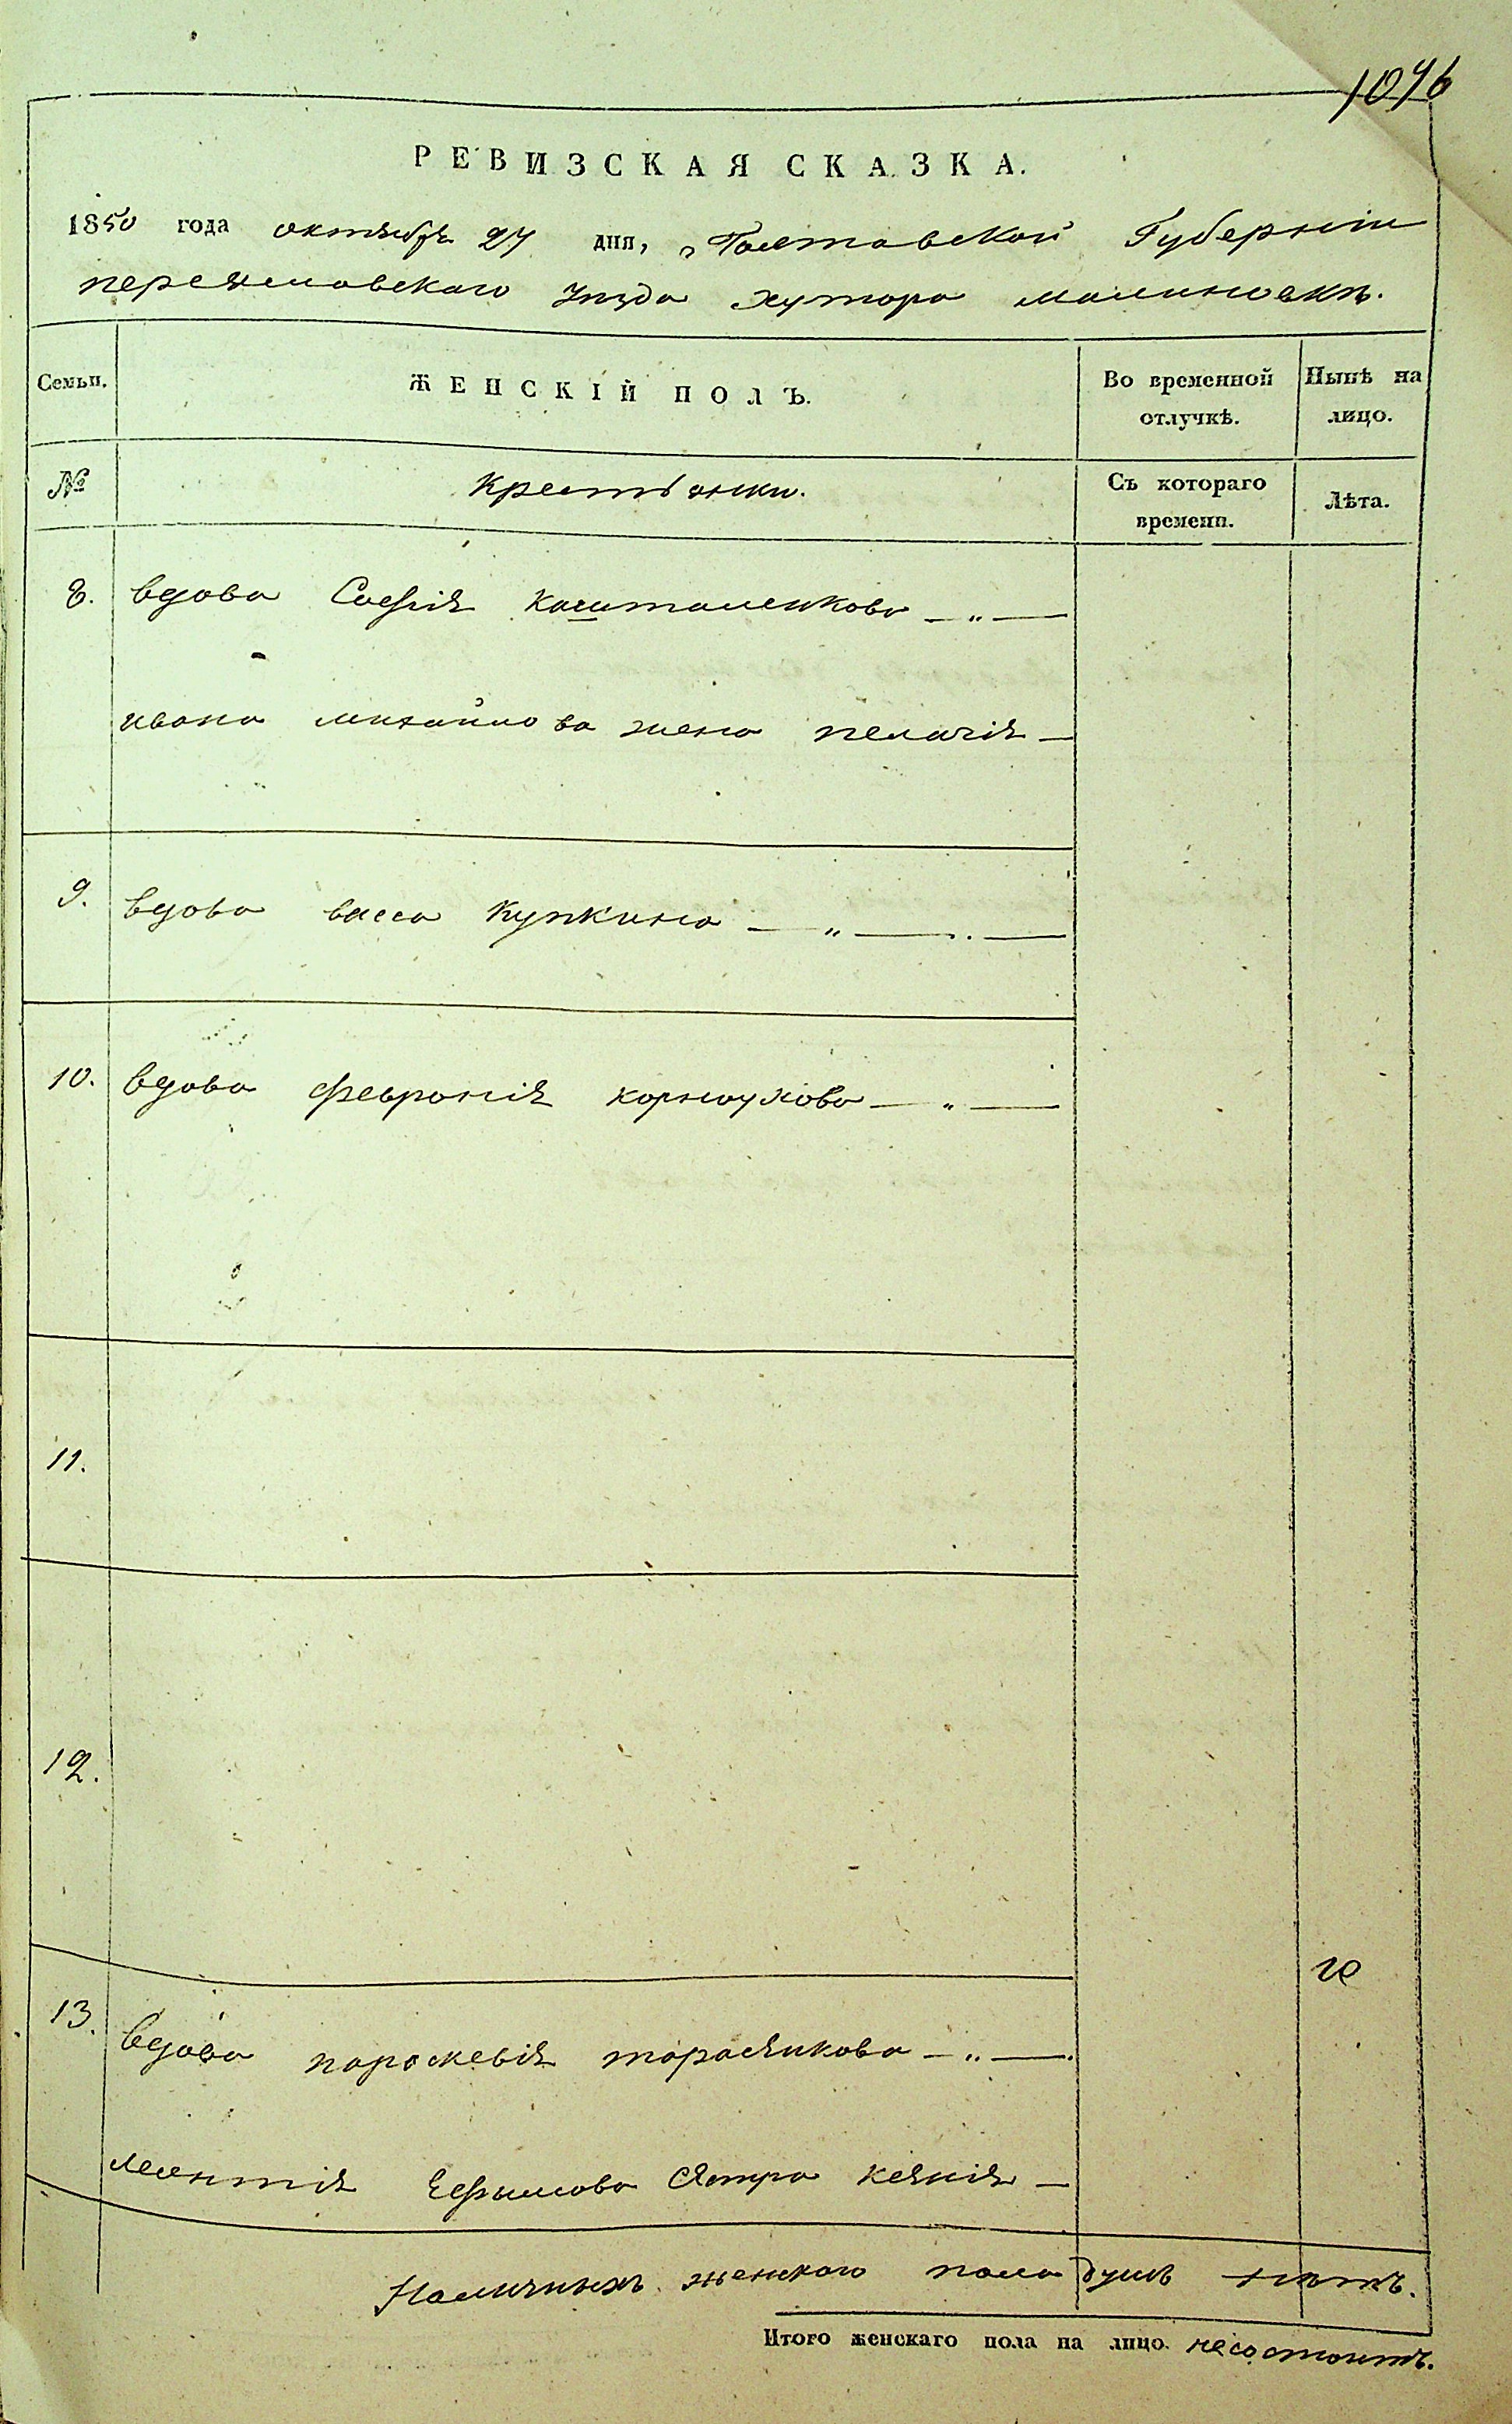 1046
РЕВИЗСКАЯ СКАЗКА.
1850 года октября 27 дня, Полтавской Губерніи
переяславскаго уѣзда хутора малиновки.
Семьи.
ЖЕНСКІЙ ПОЛЪ.
Во временной отлучкѣ.
Нынѣ на лицо.
№
Крестьянки.
Съ котораго времени.
Лѣта.
8. вдова Софія кашталенкова — „ —
ивана михайлова жена пелагія —
9. вдова васса Купкина — „ — . —
10. вдова феѵронія корноухова — „ —
11.
12.
13. вдова параскевія тарасенкова — „ —
леонтія Ефимова сестра ксенія —
Наличныхъ женскаго пола душъ нѣтъ.
Итого женскаго пола на лицо. несостоитъ.